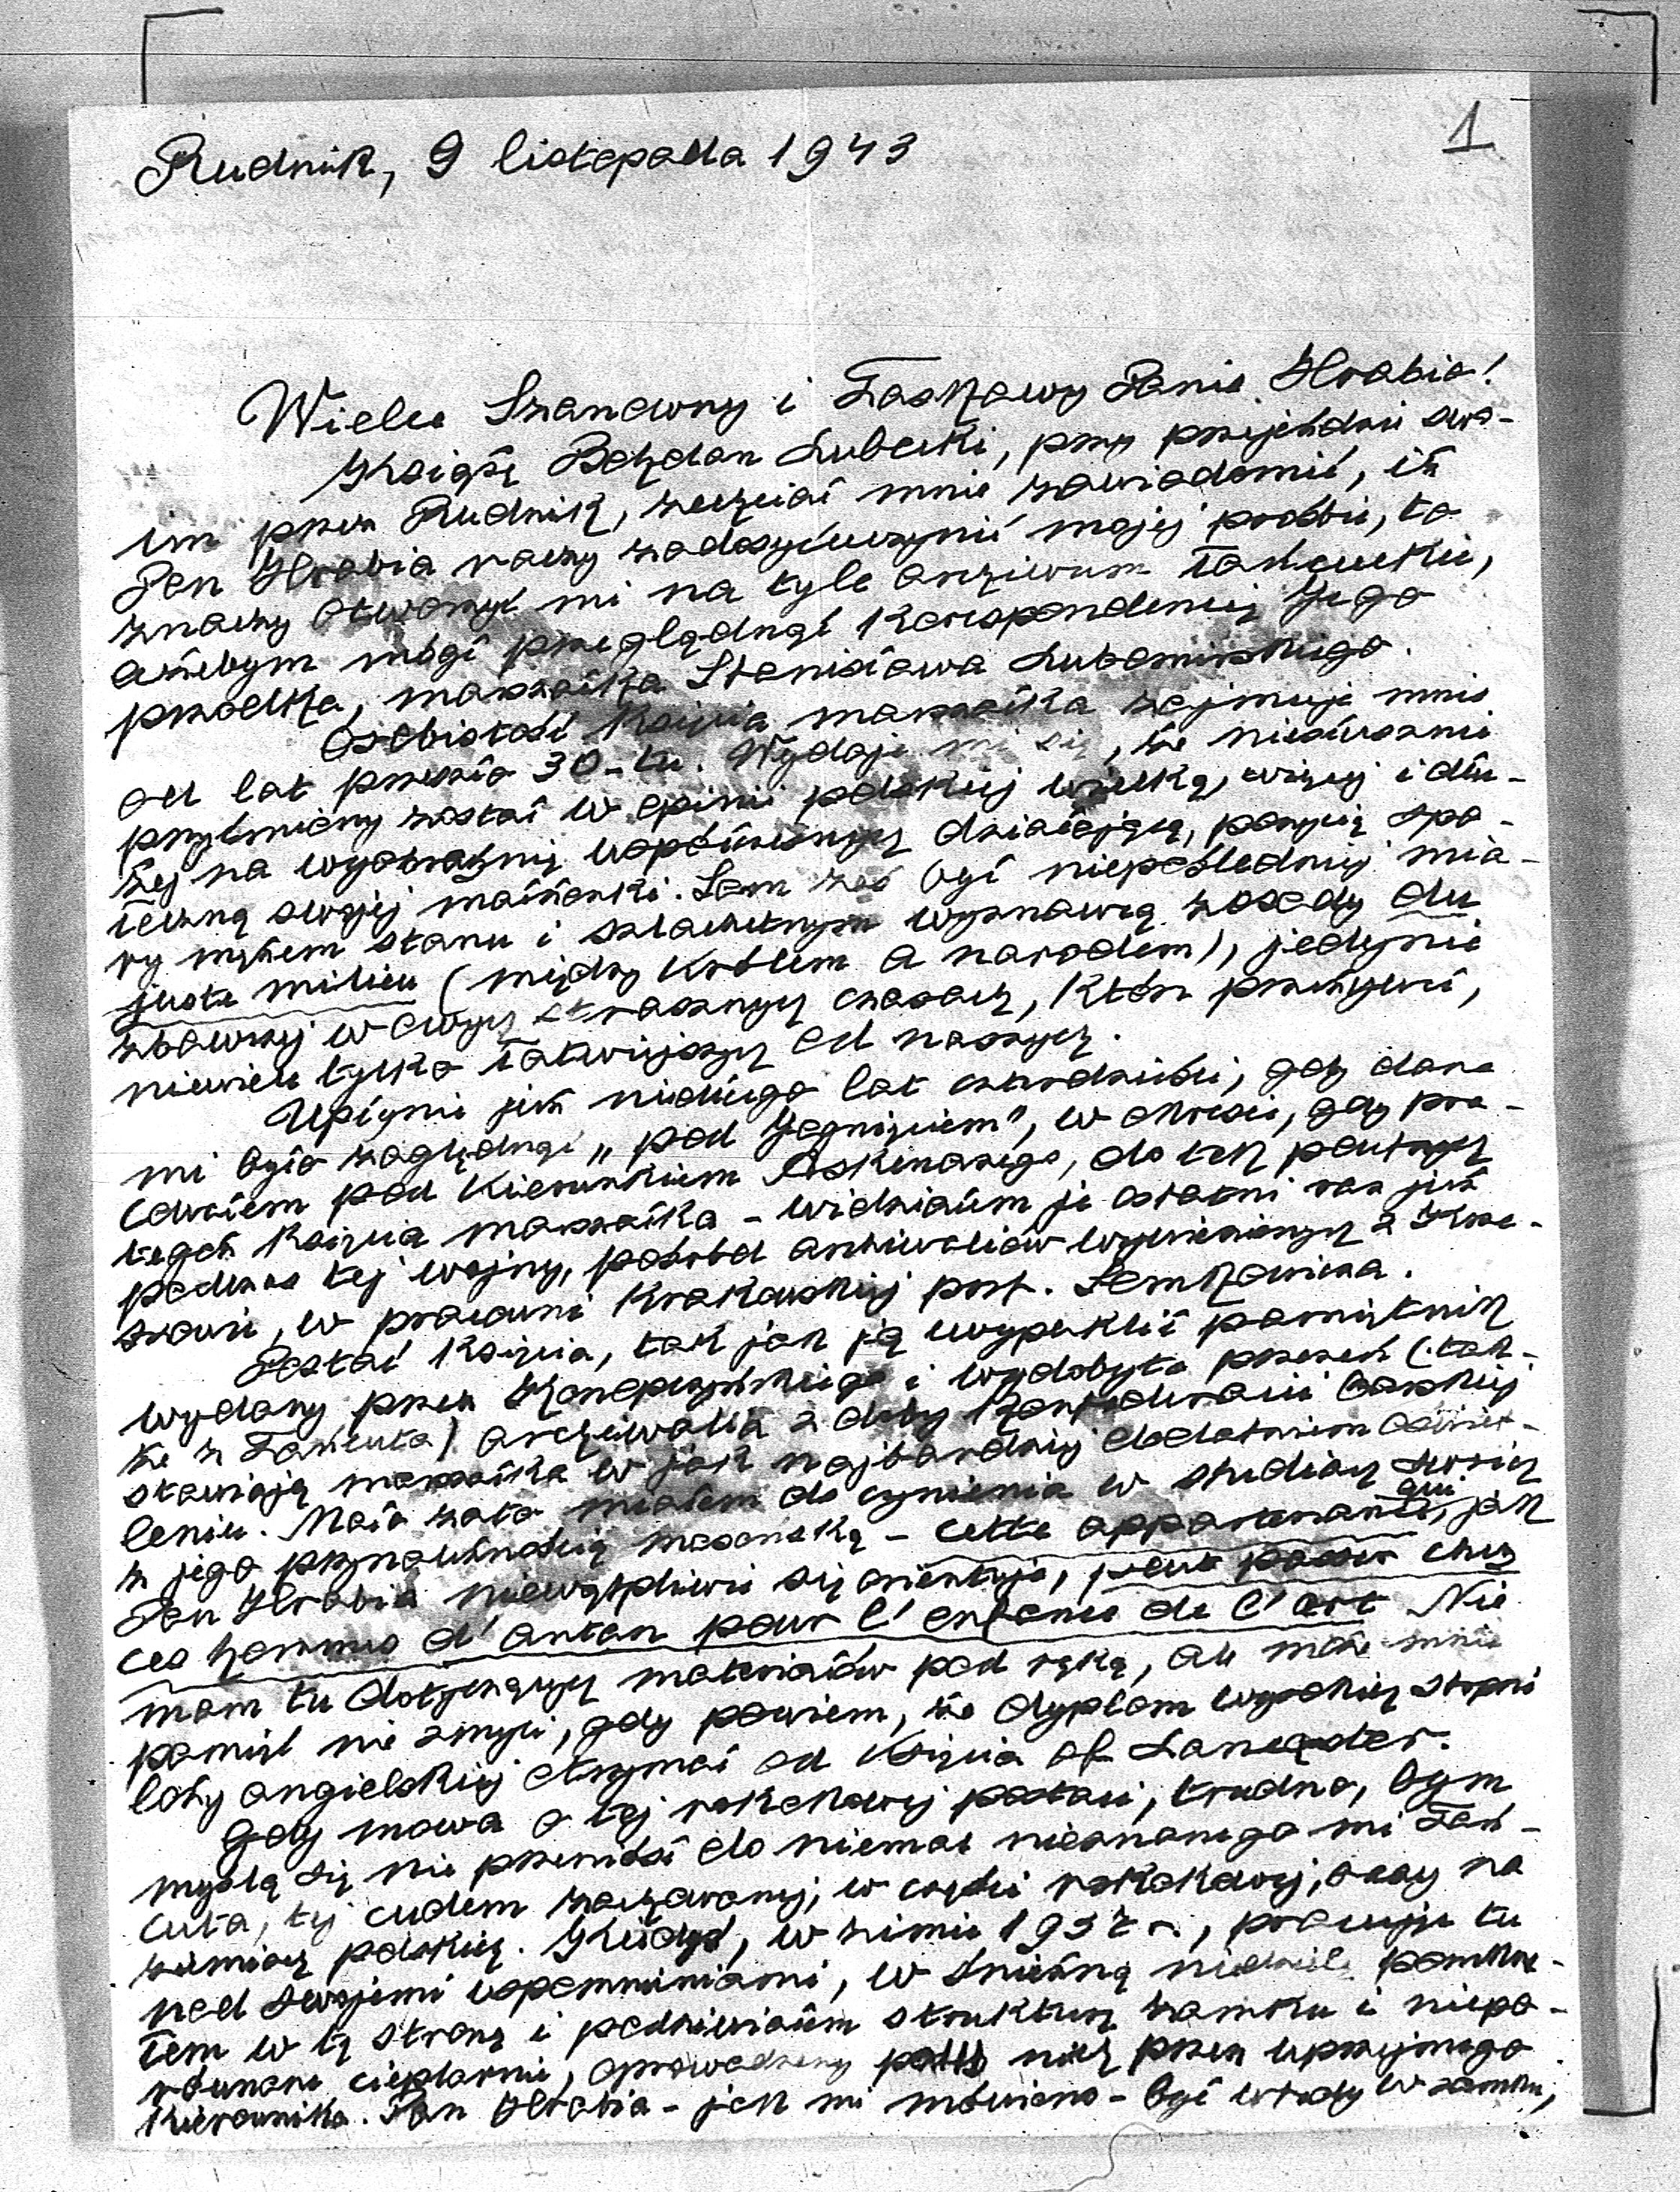 1
Rudnik, 9 listopada 1943
Wielce Szanowny i Łaskawy Panie Hrabio!
Książę Bohdan Lubecki, przy przejeździe swo-
im przez Rudnik, zechciał mnie zawiadomić, iż
Pan Hrabia raczy zadosyćuczynić mojej prośbie, to
znaczy otworzyć mi na tyle archiwum łańcuckie,
ażebym mógł przeglądnąć korespondencję Jego
przodka, marszałka Stanisława Lubomirskiego.
Osobistość księcia marszałka zajmuje mnie
od lat przeszło 30-tu. Wydaje mi się, że niesłusznie
przyćmiony został w opinii polskiej wielką, więcej i dłu-
żej na wyobraźnię współczesnych działającą, pozycją spo-
łeczną swojej małżonki. Sam zaś był niepośledniej mia-
ry mężem stanu i szlachetnym wyznawcą zasady du
juste milieu (między królem a narodem), jedynie
zbawczej w owych strasznych czasach, które przeżywał,
niewiele tylko łatwiejszych od naszych.
Upłynie już niedługo lat czterdzieści, gdy dane
mi było zaglądnąć „pod Jagnięciem", w okresie, gdy pra-
cowałem pod kierunkiem Askenazego, do tek poufnych
tegoż księcia marszałka - widziałem je ostatni raz już
podczas tej wojny, pośród archiwaliów wywiezionych z Krze-
szowic, w pracowni krakowskiej prof. Semkowicza.
Postać księcia, tak jak ją wypuklił pamiętnik
wydany przez Konopczyńskiego i wydobyte przezeń (tak-
że z Łańcuta) archiwalia z doby konfederacji barskiej
stawiają marszałka w jak najbardziej dodatniem oświet-
leniu. Mało zato miałem do czynienia w studiach swoich
z jego przynależnością masońską - cette appartenance, jak
Pan Hrabia niewątpliwie się orientuje, qui peut passer chez
ces hommes d'antan pour l'enfance de l'art. Nie
mam tu dotyczących materiałów pod ręką, ale może mnie
pamięć nie zmyli, gdy powiem, że dyplom wysokich stopni
loży angielskiej otrzymał od księcia of Lancaster.
Gdy mowa o tej rokokowej postaci, trudno, bym
myślą się nie przeniósł do niemal nieznanego mi Łań-
cuta, tej cudem zachowanej, w części rokokowej, oazy na
ziemiach polskich. Kiedyś, w zimie 1937 r., pracując tu
nad swojemi wspomnieniami, w śnieżną niedzielę pomkną-
łem w tę stronę i podziwiałem strukturę zamku i niepo-
równane cieplarnie, oprowadzany po nich przez uprzejmego
kierownika. Pan Hrabia - jak mi mówiono - był wtedy w zamku,